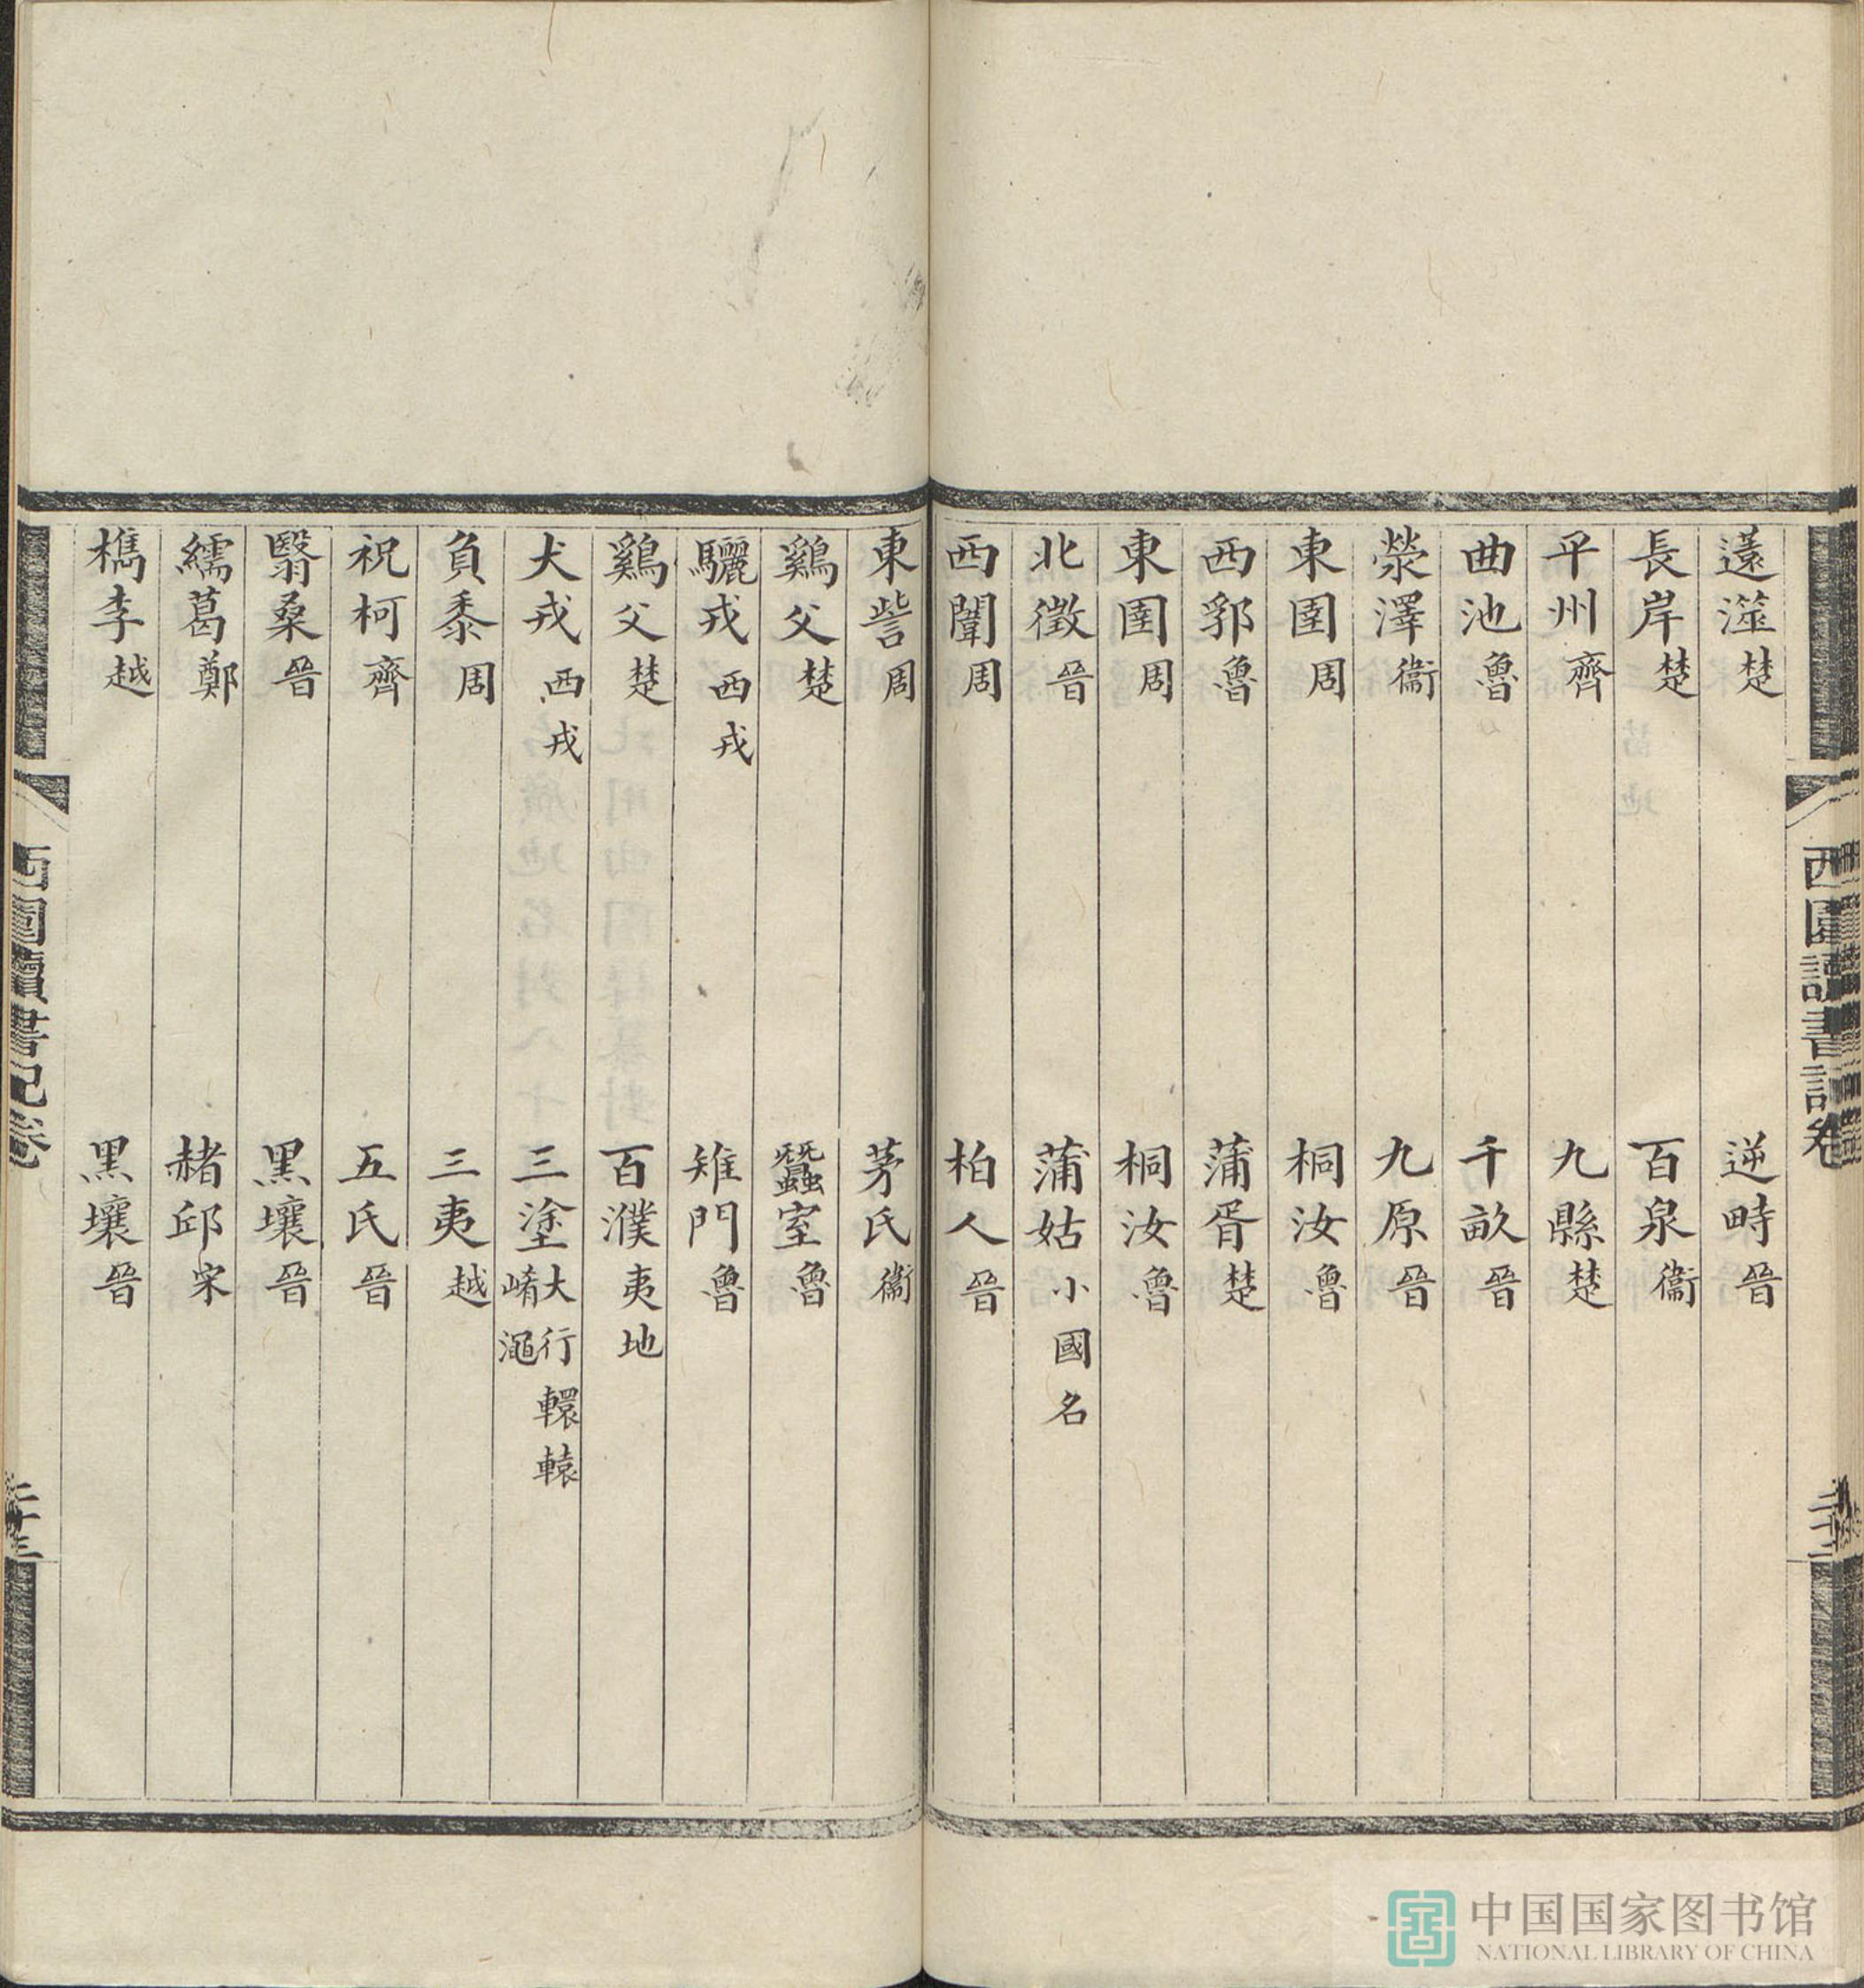 薳澨楚 逆畤晉
長岸楚 百泉衞
平州齊 九縣楚
曲池魯 千畝晉
滎澤衞 九原晉
東圉周 桐汝魯
西郛魯 蒲胥楚
東圉周 桐汝魯
北徵晉 蒲姑小國名
西闈周 柏人晉
東訾周 茅氏衞
鷄父楚 蠶室魯
驪戎西戎 雉門魯
鷄父楚 百濮夷地
犬戎西戎 三塗大行轘轅崤澠
負黍周 三夷越
祝柯齊 五氏晉
翳桑晉 黑壤晉
繻葛鄭 赭邱宋
檇李越 黑壤晉
西園讀書記卷
西園讀書記卷
二十三
中国国家图书馆
NATIONAL LIBRARY OF CHINA